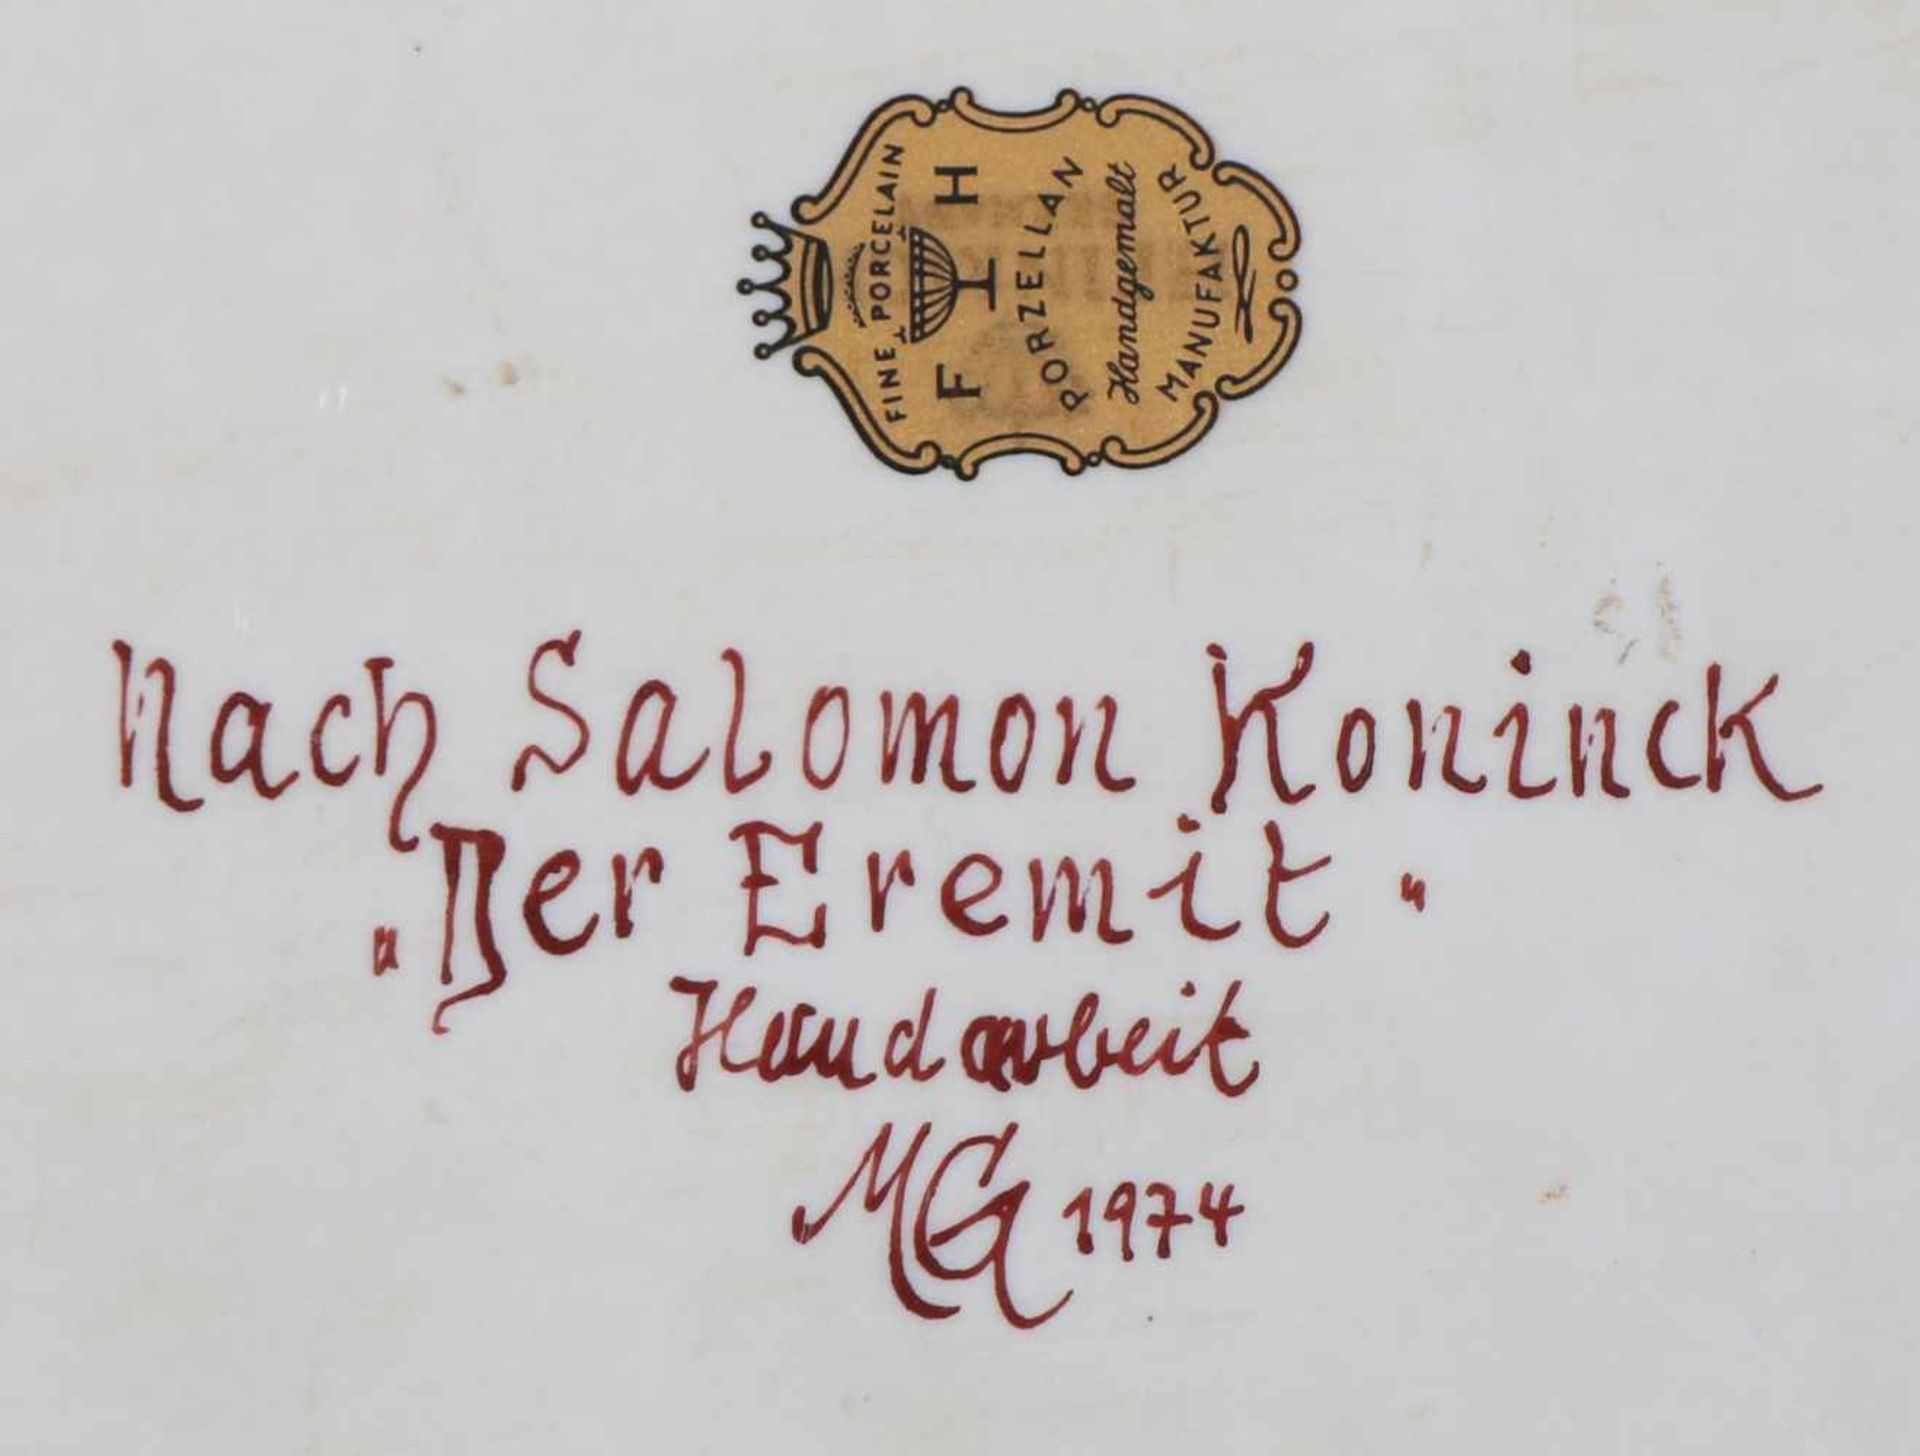 FINE PORCELAIN
F H
PORZELLAN
Handgemalt
MANUFAKTUR
Nach Salomon Koninck
„Der Eremit"
Handarbeit
MG 1974